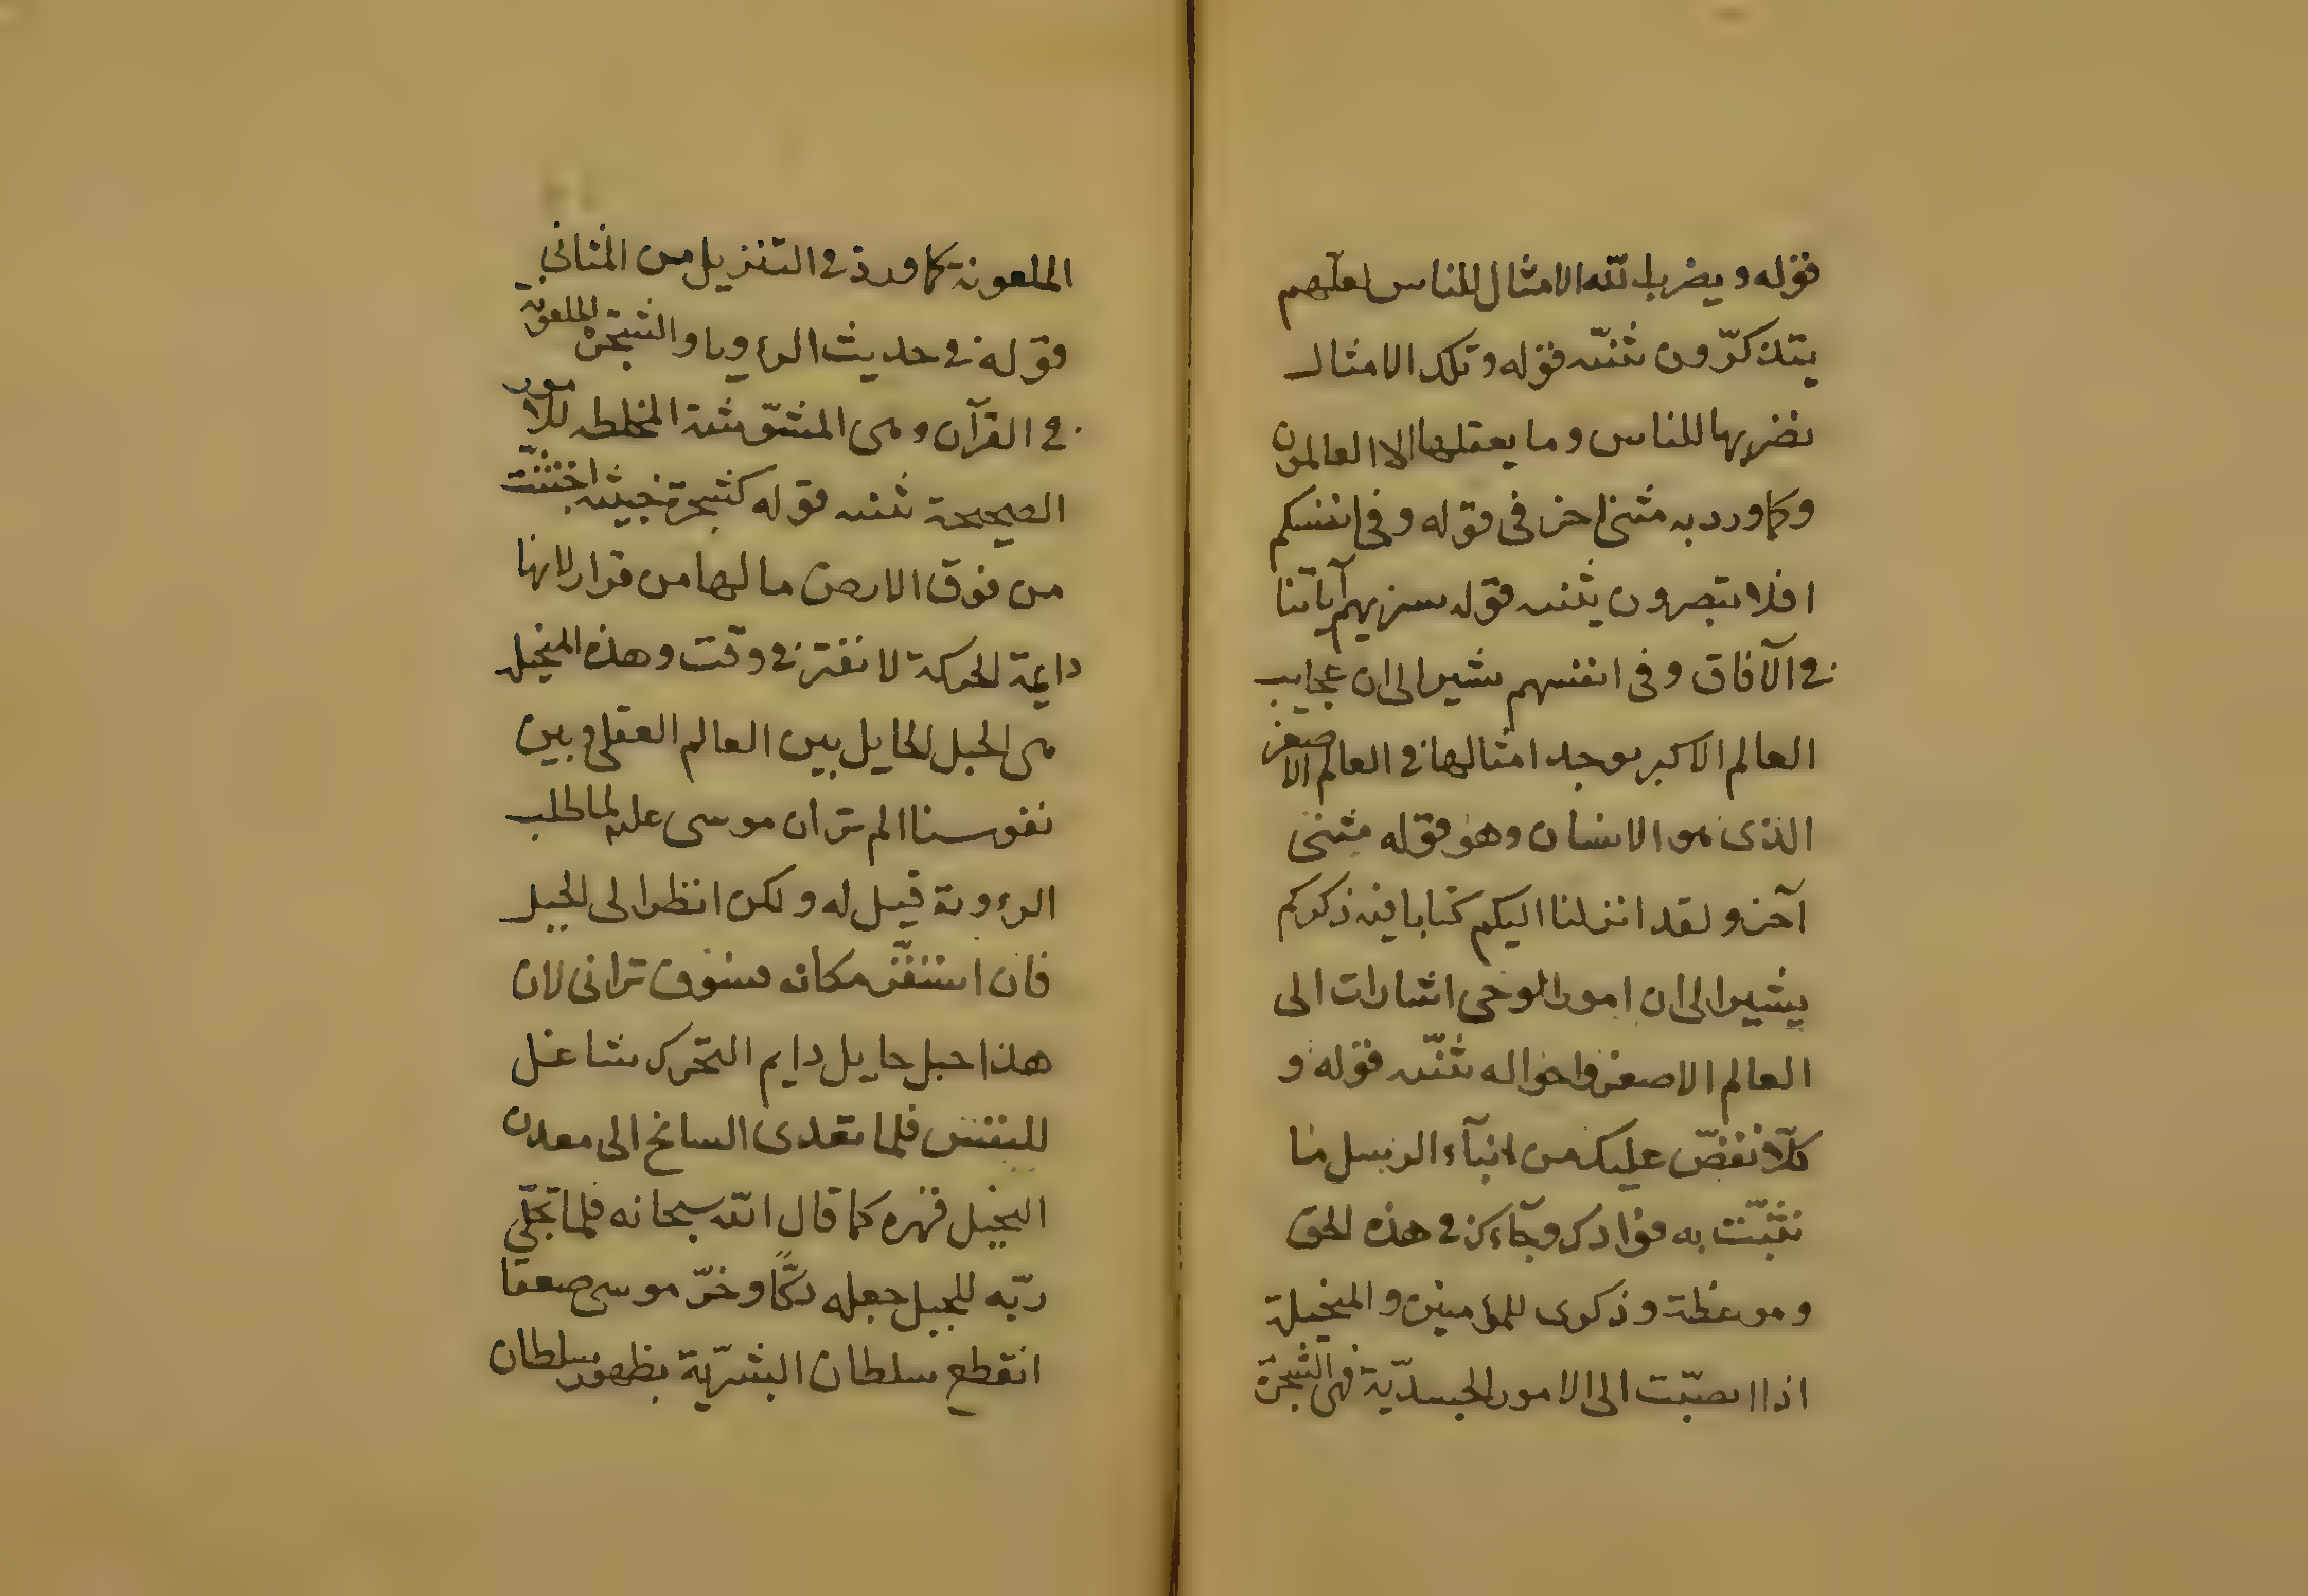 قوله ويضرب الله الامثال للناس لعلّهم
يتذكّرون ثنّته قوله وتلك الامثال
نضربها للناس وما يعقلها الا العالمون
وكما ورد به مثنى اخر فى قوله وفى انفسكم
افلا تبصرون يثنيه قوله سنريهم آياتنا
فى الآفاق وفى انفسهم يشير الى ان عجايب
العالم الاكبر يوجد امثالها فى العالم الاصغر
الذى هو الانسان وهو قوله مثنى
آخر ولقد انزلنا اليكم كتابا فيه ذكركم
يشير الى ان امور الوحى اشارات الى
العالم الاصغر واحواله ثنّته قوله و
كلّا نقصّ عليك من انبآء الرسل ما
نثبّت به فوادك وجآءك فى هذه الحق
وموعظة وذكرى للمؤمنين والمتخيلة
اذا انصبّت الى الامور الجسدّية فهى الشجرة
الملعونة كما ورد فى التنزيل من المثانى
قوله فى حديث الرءويا والشجرة الملعونة
فى القرآن وهى المشوّشة المخلطه للامور
الصحيحة ثنته قوله كشجرة خبيثه اجتثّت
من فوق الارض ما لها من قرار لانها
دايمة الحركة لا تفتر فى وقت وهذه المتخيله
هى الجبل الحايل بين العالم العقلى وبين
نفوسنا الم تر ان موسى عليه لما طلب
الرءوية قيل له ولكن انظر الى الجبل
فان استقرّ مكانه فسوف ترانى لان
هذا جبل حايل دايم التحرك شاغل
للنفس فلما تعدى السانح الى معدن
التخيل قهره كما قال الله سبحانه فلما تجلّى
ربّه للجبل جعله دكًّا وخرّ موسى صعقا
انقطع سلطان البشرّية بظهور سلطان